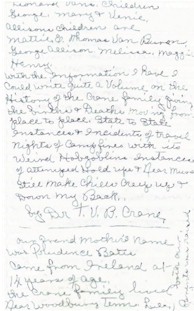 Leonard Vans. Children
George Mary & Jenie,
Allisons Children are
Martin, Thomas Van Buren,
George Allison Melissa Magg
Henry
With the Information I have I
Could write Quite a Volume on the
History of the Crane family giving
the Births & Deaths moving from
place to place. State to State
Instances & Incidents of travel
Nights of Campfires with its
Weird Hobgoblins Instances
of attempted Hold ups &
Still Make Chills Creep up &
Down My Back,
by Dr T. V. B. Crane,
our Grand Mother's Name
was Prudence Bates
Came from Ireland at
1½ years of age,
the Crane family lived
Near Woodbury Tenn